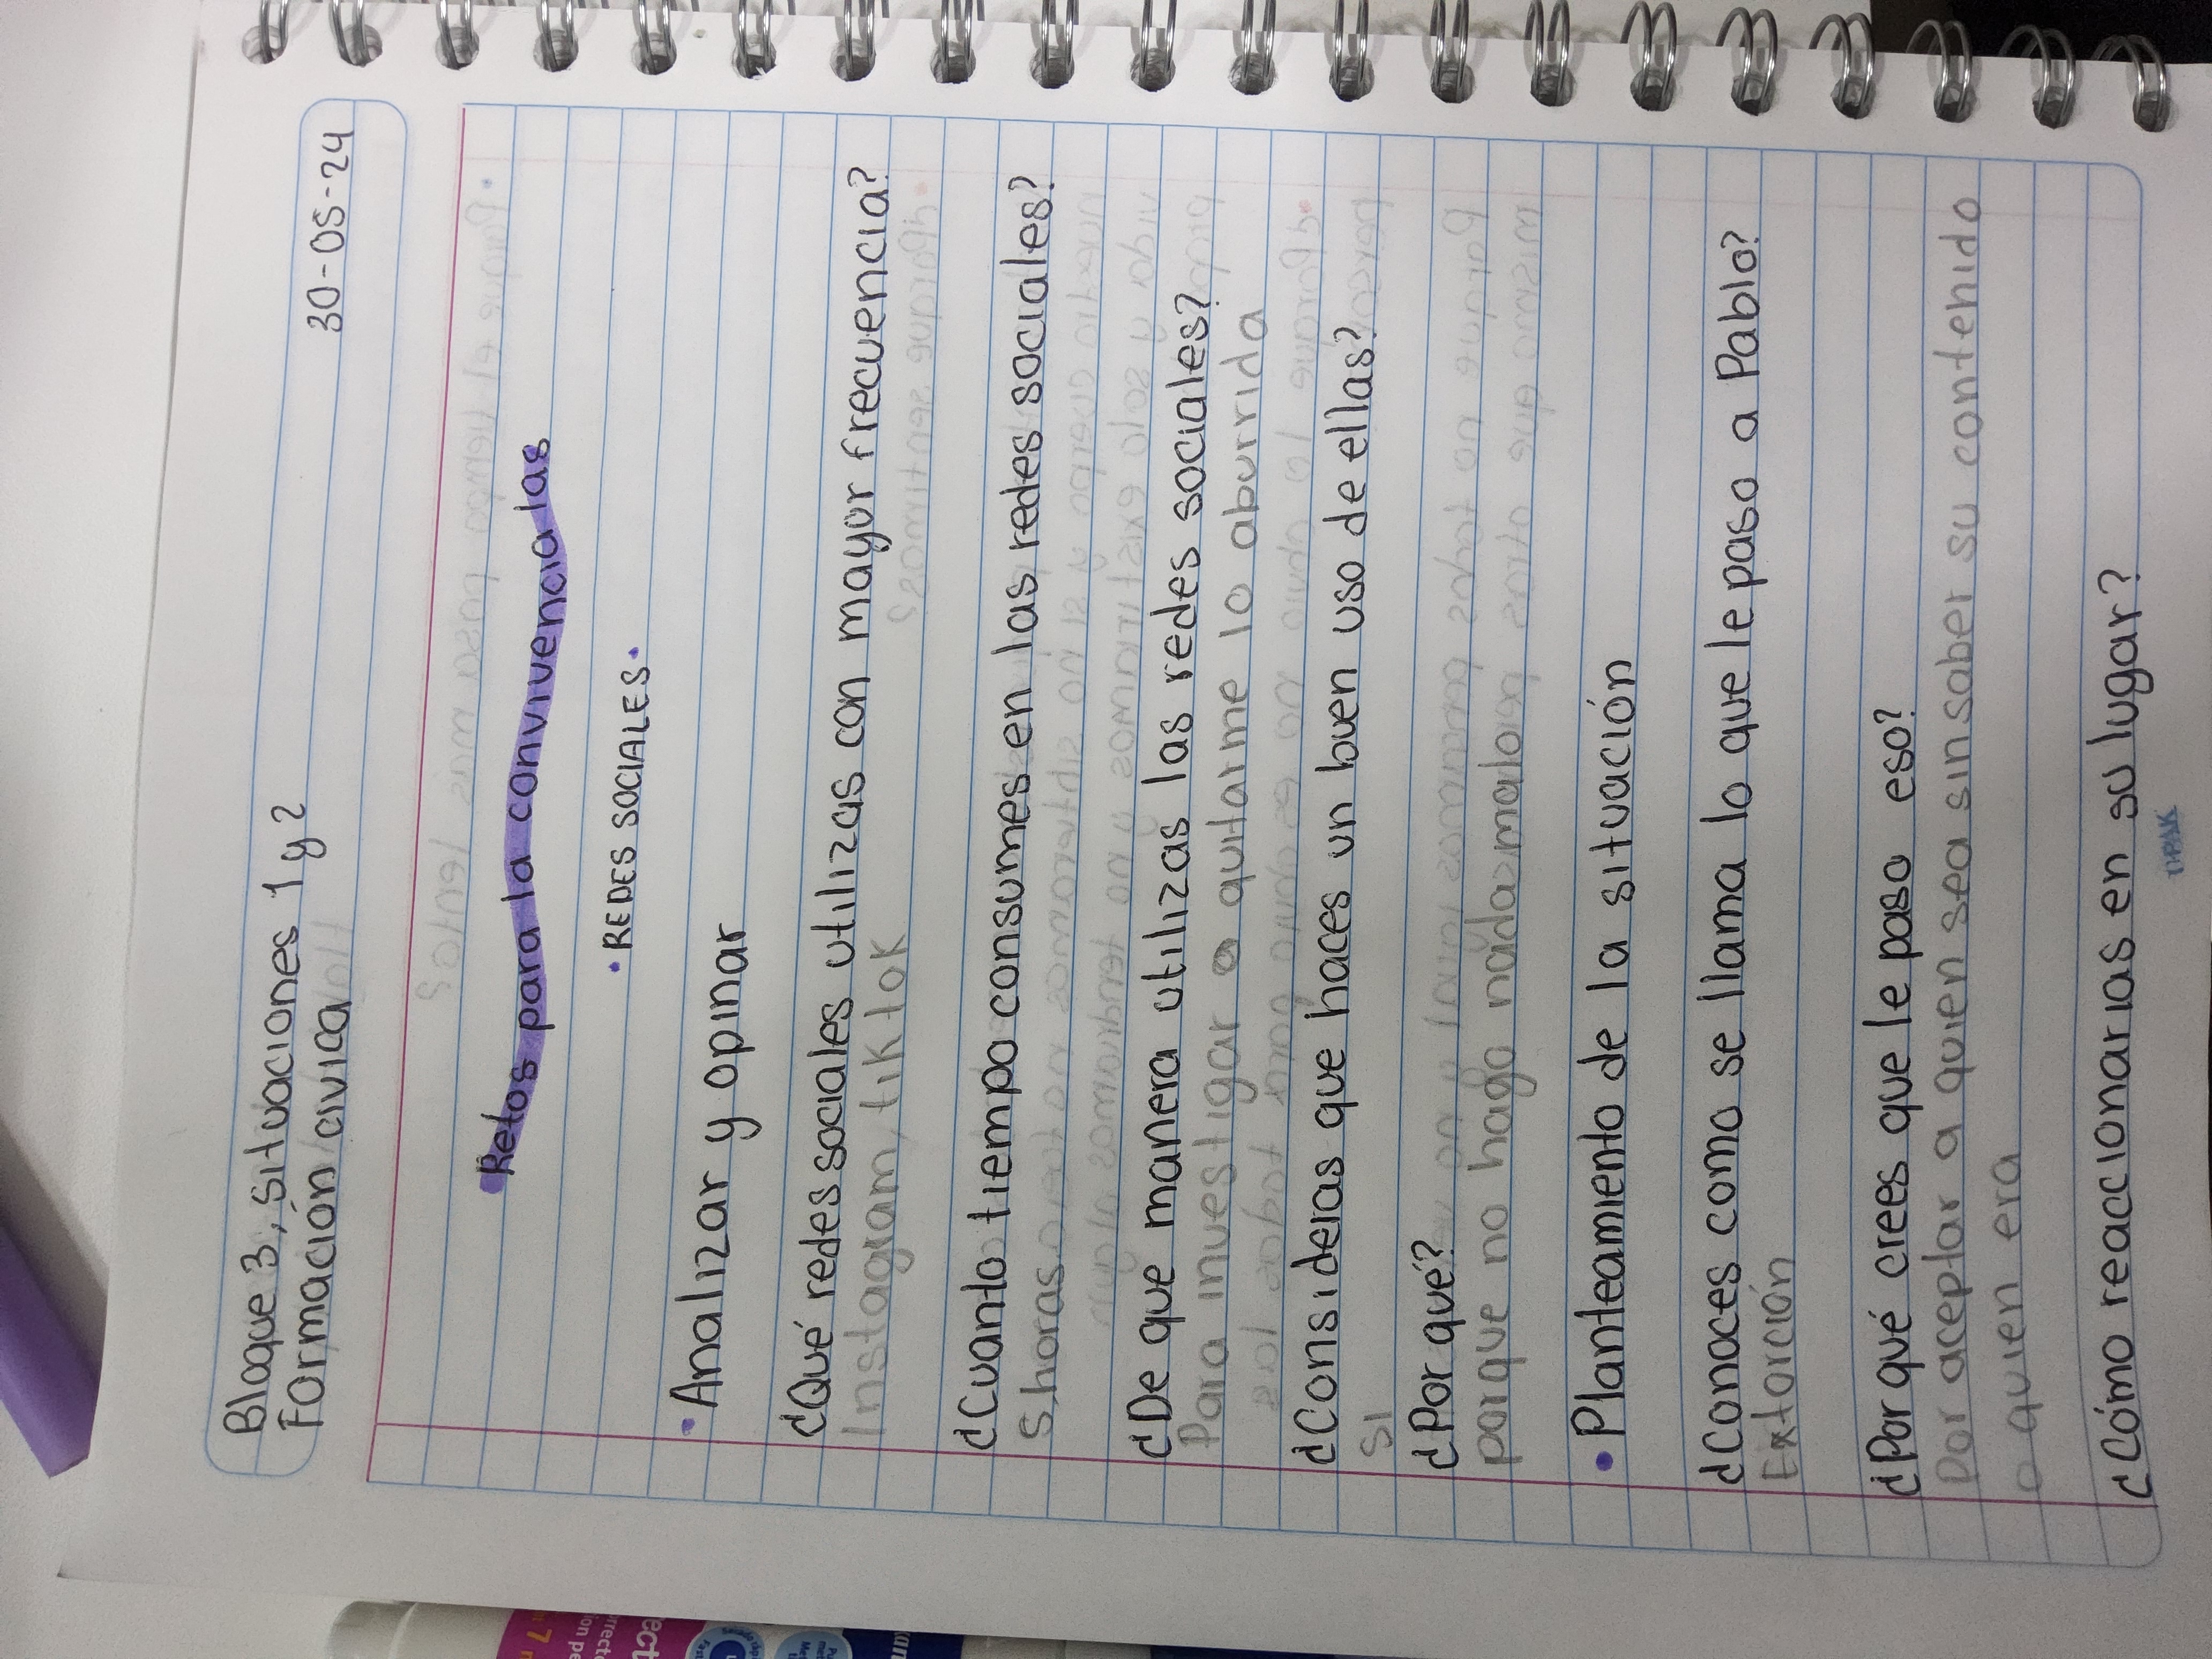 Bloque 3, situaciones 1 y 2
Formación civica 30-05-24
Retos para la convivencia las
• REDES SOCIALES •
• Analizar y opinar
¿Qué redes sociales utilizas con mayor frecuencia?
Instagram, tiktok
¿Cuanto tiempo consumes en las redes sociales?
5 horas
¿De que manera utilizas las redes sociales?
Para investigar o quitarme lo aburrida
¿Consideras que haces un buen uso de ellas?
Si
¿Por qué?
porque no hago nada malo
• Planteamiento de la situación
¿Conoces como se llama lo que le paso a Pablo?
Extorción
¿Por qué crees que le paso eso?
Por aceptar a quien sea sin saber su contenido
o quien era
¿Cómo reaccionarias en su lugar?